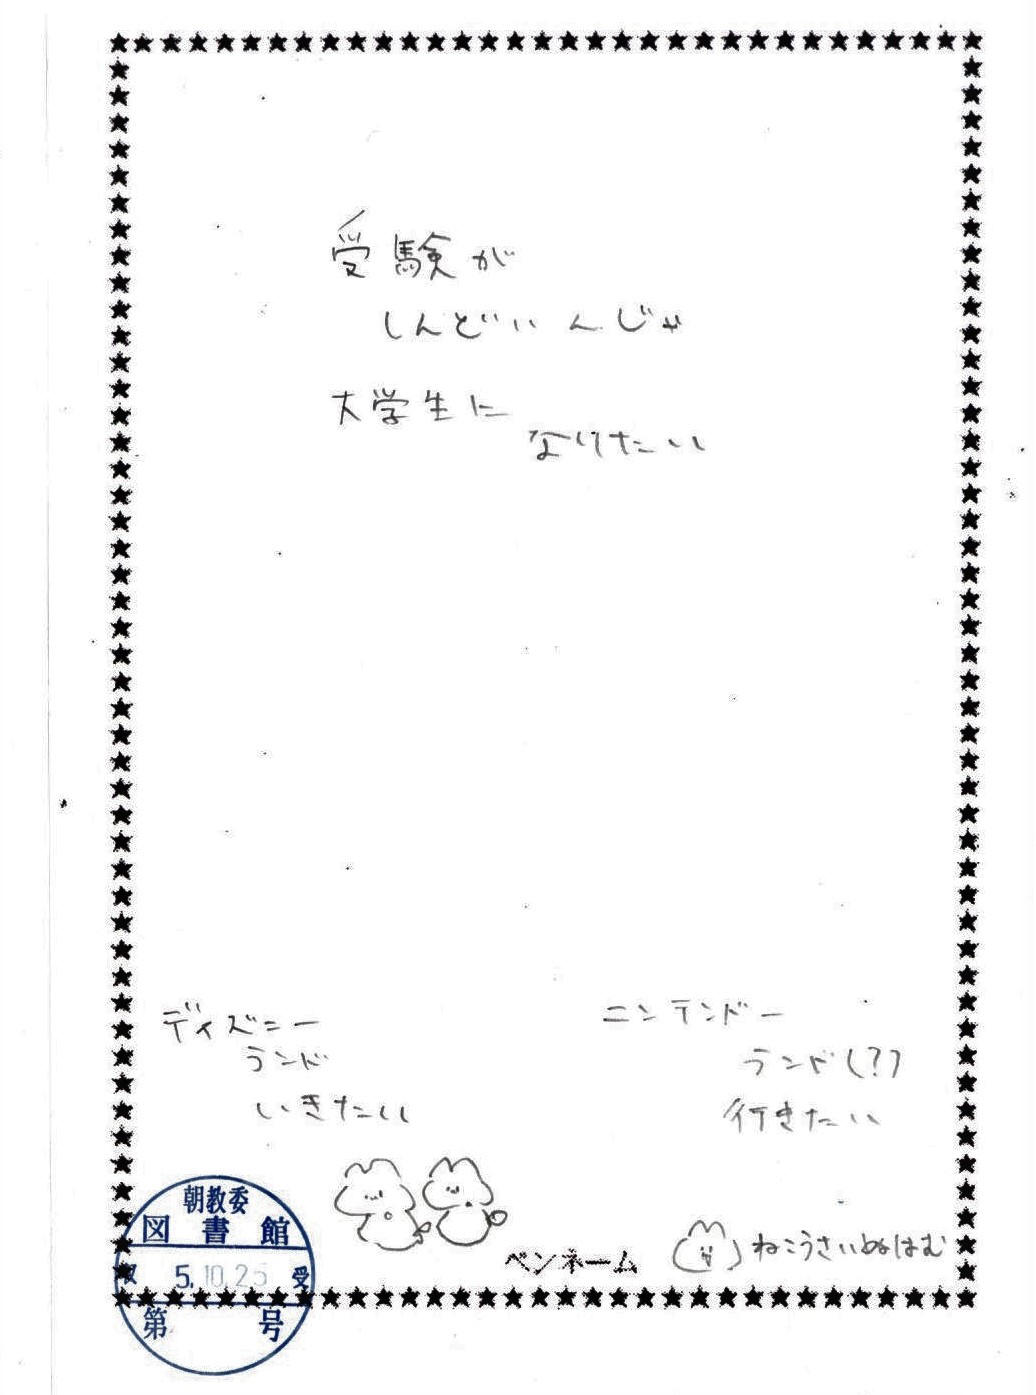 受験が
しんどいんじゃ
大学生に
なりたい
ディズニー
ランド
いきたい
ニンテンドー
ランド(?)
行きたい
ペンネーム ねこうさいぬはむ
朝教委
図書館
収 5.10.25 受
第 号